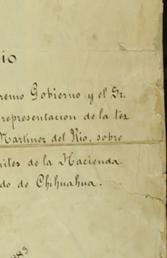 io
remo Gobierno y el Sr.
representacion de la tes
Martinez del Rio, sobre
ites de la Hacienda
do de Chihuahua.